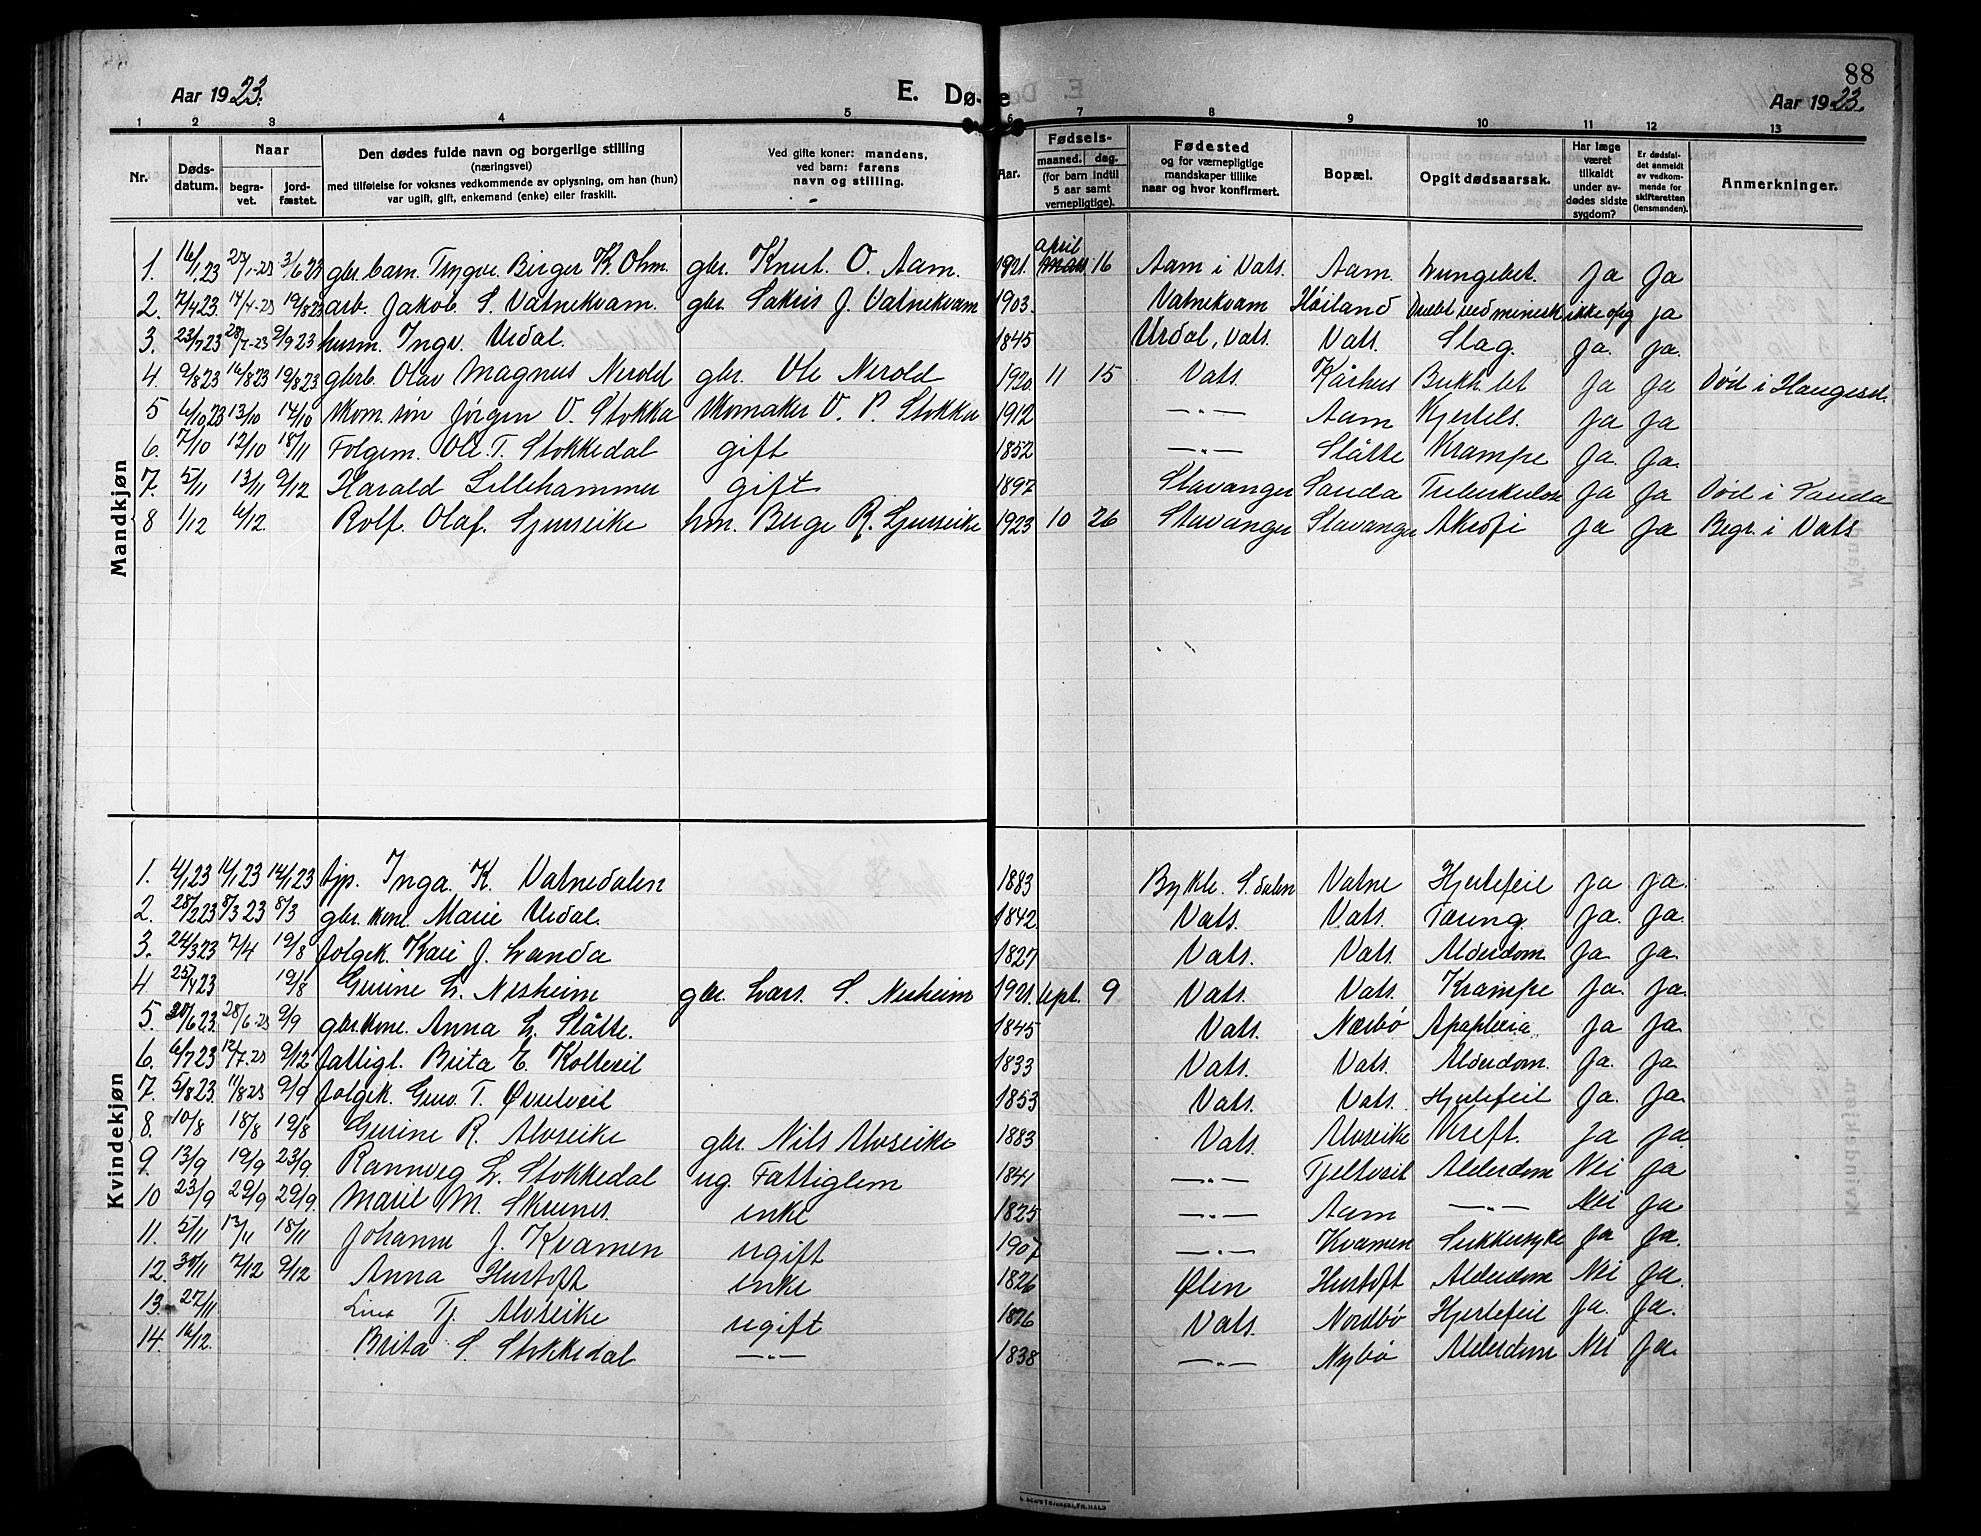 88
Aar 1923.
E. Dø- e
Aar 1923.
1 2 3 4 5 6 7 8 9 10 11 12 13
Nr.
Dødsdatum.
Naar
begravet.
jordfæstet.
Den dødes fulde navn og borgerlige stilling
(næringsvei)
med tilføielse for voksnes vedkommende av oplysning, om han (hun)
var ugift, gift, enkemand (enke) eller fraskilt.
Ved gifte koner: mandens,
ved barn: farens
navn og stilling.
Aar.
Fødsels-
maaned. dag.
(for barn indtil
5 aar samt
vernepligtige).
Fødested
og for værnepligtige
mandskaper tillike
naar og hvor konfirmert.
Bopæl.
Opgit dødsaarsak.
Har læge
været
tilkaldt
under avdødes sidste
sygdom?
Er dødsfaldet anmeldt
av vedkommende for
skifteretten
(lensmanden).
Anmerkninger.
Mandkjøn
1. 16/1 23 23/1-23 3/6 23 gbr. barn Trygve Birger K. Ohm. gbr. Knut O. Aam. 1921. april 16 Aam i Vats. Aam. Lungebet. Ja Ja
2. 7/4 23 14/4-23 19/8 23 arb. Jakob S. Vatnekvam. gbr. Sakris J. Vatnekvam 1903. Vatnekvam Høiland Dræbt ved minesk ikke ja
3. 23/7 23 28/7-23 9/9 23 husm. Ingv. Urdal. 1845 Urdal, Vats. Vats. Slag. ja. ja.
4. 9/8 23 14/8 23 19/8 23 gbrb. Olav Magnus Nerold gbr. Ole Nerold 1920. 11 15 Vats. Kårhus Bukh.bet Ja Ja Død i Haugesd.
5 6/10 23 13/10 14/10 Skom. søn Jørgen O. Stokka Skomaker O. P. Stokka 1912 —„— Aam Hjertels. Ja Ja
6. 7/10 12/10 18/11 Folgem. Ole T. Stokkedal gift 1852 —„— Slåtte Krampe Ja. Ja.
7. 5/11 13/11 9/12 Harald Lillehammer gift 1897 Stavanger Sauda Tuberkulose Ja Ja Død i Sauda
8 1/12 6/12 Rolf Olaf Ljunseike hm. Berge R. Ljunseike 1923 10 26 Stavanger Stavanger Atrofi Ja Ja Begr. i Vats
Kvindekjøn
1. 4/1 23 14/1 23 14/1 23 tjp. Inga K. Vatnedalen 1883 Bykle. S.dalen Vatne Hjertefeil Ja Ja.
2. 28/2 23 8/3 23 8/3 gbr. kone Marie Urdal. 1842. Vats. Vats. Tæring. Ja. Ja.
3. 24/3 23 7/4 19/8 folgek. Kari J. Landa 1827 Vats. Vats. Alderdom Ja. Ja.
4 25/4 23 19/8 Gurine L. Nesheim gbr. Lars S. Nesheim 1921. sept. 9 Vats. Vats. Krampe Ja. Ja.
5. 20/6 23. 28/6-23 9/9 gbr.kone. Anna L. Slåtte. 1845 Vats. Nærbø Apoplexia Ja Ja.
6. 6/7 23 12/7-23 9/12 fattigl. Brita E. Koltveit 1833 Vats. Vats. Alderdom. Ja. Ja.
7. 5/8 23. 11/8 23 9/9 folgek. Guro T. Øvretveit 1853 Vats. Vats. Hjertefeil Ja. Ja.
8. 10/8 18/8 19/8 Gurine R. Alvseike gbr. Nils Alvseike 1883 Vats. Alvseike Kreft. Ja Ja
9 13/9 19/9 23/9 Rannveg L. Stokkedal ug. Fattiglem 1841 —„— Tjeltveit Alderdom Nei Ja
10 23/9 29/9 29/9. Marie M. Skrunes enke 1825 —„— Aam —„— Nei Ja.
11. 5/11 13/11 18/11 Johanne J. Kvamen ugift 1907 —„— Kvamen Sukkersyke Ja Ja.
12. 30/11 7/12 9/12 Anna Hustoft enke 1826 Ølen Hustoft Alderdom Nei Ja.
13. 27/11 Lina Tj. Alvseike ugift 1826 Vats. Nordbø Hjertefeil Ja. Ja.
14. 16/12. Brita S. Stokkedal —„— 1838 —„— Nybø Alderdom Nei Ja.